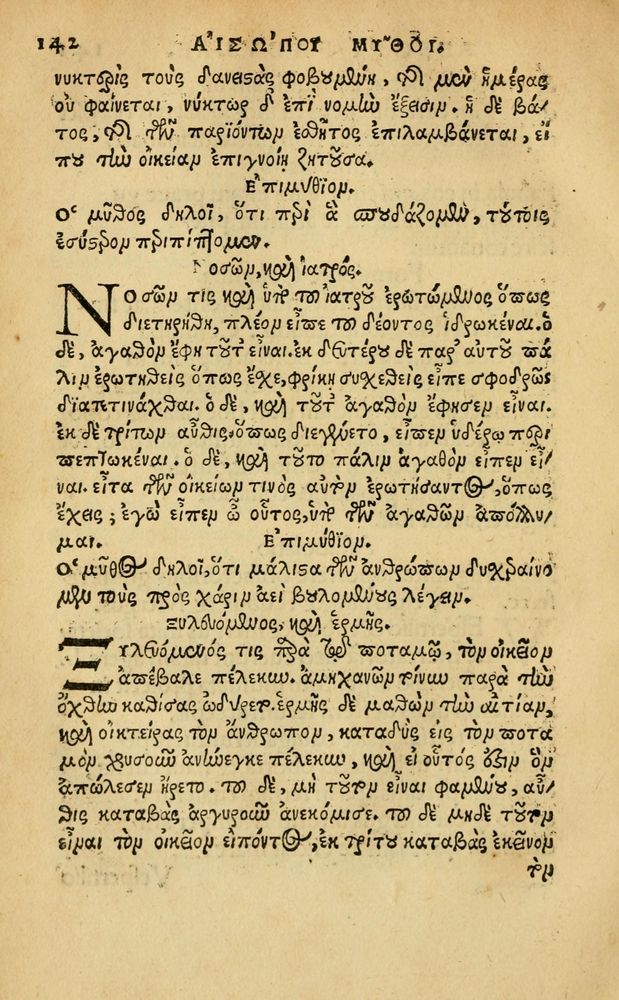 142 ΑἸΣΩ'ΠΟΥ ΜΥ͂ΘΟΙ.
νυκτερὶς τοὺς δανειστὰς φοβουμένη, διὰ μὲν ἡμέρας
οὐ φαίνεται, νύκτωρ δ' ἐπὶ νομὴν ἔξεισιν. ἡ δὲ βά-
τος, διὰ τῶν παριόντων ἐσθῆτος ἐπιλαμβάνεται, εἴ
που τὴν οἰκείαν ἐπιγνοίη ζητοῦσα.
Ἐπιμύθιον.
Ὁ μῦθος δηλοῖ, ὅτι περὶ ἃ σπουδάζομεν, τούτοις
ἐς ὕστερον περιπίπτομεν.
Νοσῶν, καὶ ἰατρός.
Νοσῶν τις καὶ ὑπὸ τοῦ ἰατροῦ ἐρωτώμενος ὅπως
διετηρήθη, πλέον εἶπε τοῦ δέοντος ἱδρωκέναι. ὁ
δὲ, ἀγαθὸν ἔφη τοῦτ' εἶναι. ἐκ δευτέρου δὲ παρ' αὐτοῦ πά
λιν ἐρωτηθεὶς ὅπως ἔχε, φρίκῃ συχεθεὶς εἶπε σφοδρῶς
διαπετινάχθαι. ὁ δὲ, καὶ τοῦτ' ἀγαθὸν ἔφησεν εἶναι.
ἐκ δὲ τρίτων αὖθις, ὅπως διεγένετο, εἶπεν ὑδέρῳ περι
πεπτωκέναι. ὁ δὲ, καὶ τοῦτο πάλιν ἀγαθὸν εἶπεν εἶ-
ναι. εἶτα τῶν οἰκείων τινὸς αὐτὸν ἐρωτήσαντος, ὅπως
ἔχεις; ἐγὼ εἶπεν ὦ οὗτος, ὑπὸ τῶν ἀγαθῶν ἀπόλλυ-
μαι. Ἐπιμύθιον.
Ὁ μῦθος δηλοῖ, ὅτι μάλιστα τῶν ἀνθρώπων δυσχραίνο
μεν τοὺς πρὸς χάριν ἀεὶ βουλομένους λέγειν.
Ξυλευόμενος, καὶ ἑρμῆς.
Ξυλευόμενός τις παρά τινι ποταμῷ, τὸν οἰκεῖον
ἀπέβαλε πέλεκυν. ἀμηχανῶν τοίνυν παρὰ τὴν
ὄχθην καθίσας ὠδύρετο. ἑρμῆς δὲ μαθὼν τὴν αἰτίαν,
καὶ οἰκτείρας τὸν ἄνθρωπον, καταδὺς εἰς τὸν ποτα
μὸν χρυσοῦν ἀνήνεγκε πέλεκυν, καὶ εἰ οὗτός ἐστιν ὃν
ἀπώλεσεν ἤρετο. τοῦ δὲ, μὴ τοῦτον εἶναι φαμένου, αὖ-
θις καταβὰς ἀργυροῦν ἀνεκόμισε. τοῦ δὲ μηδὲ τοῦτον
εἶναι τὸν οἰκεῖον εἰπόντος, ἐκ τρίτου καταβὰς ἐκεῖνον
τὸν